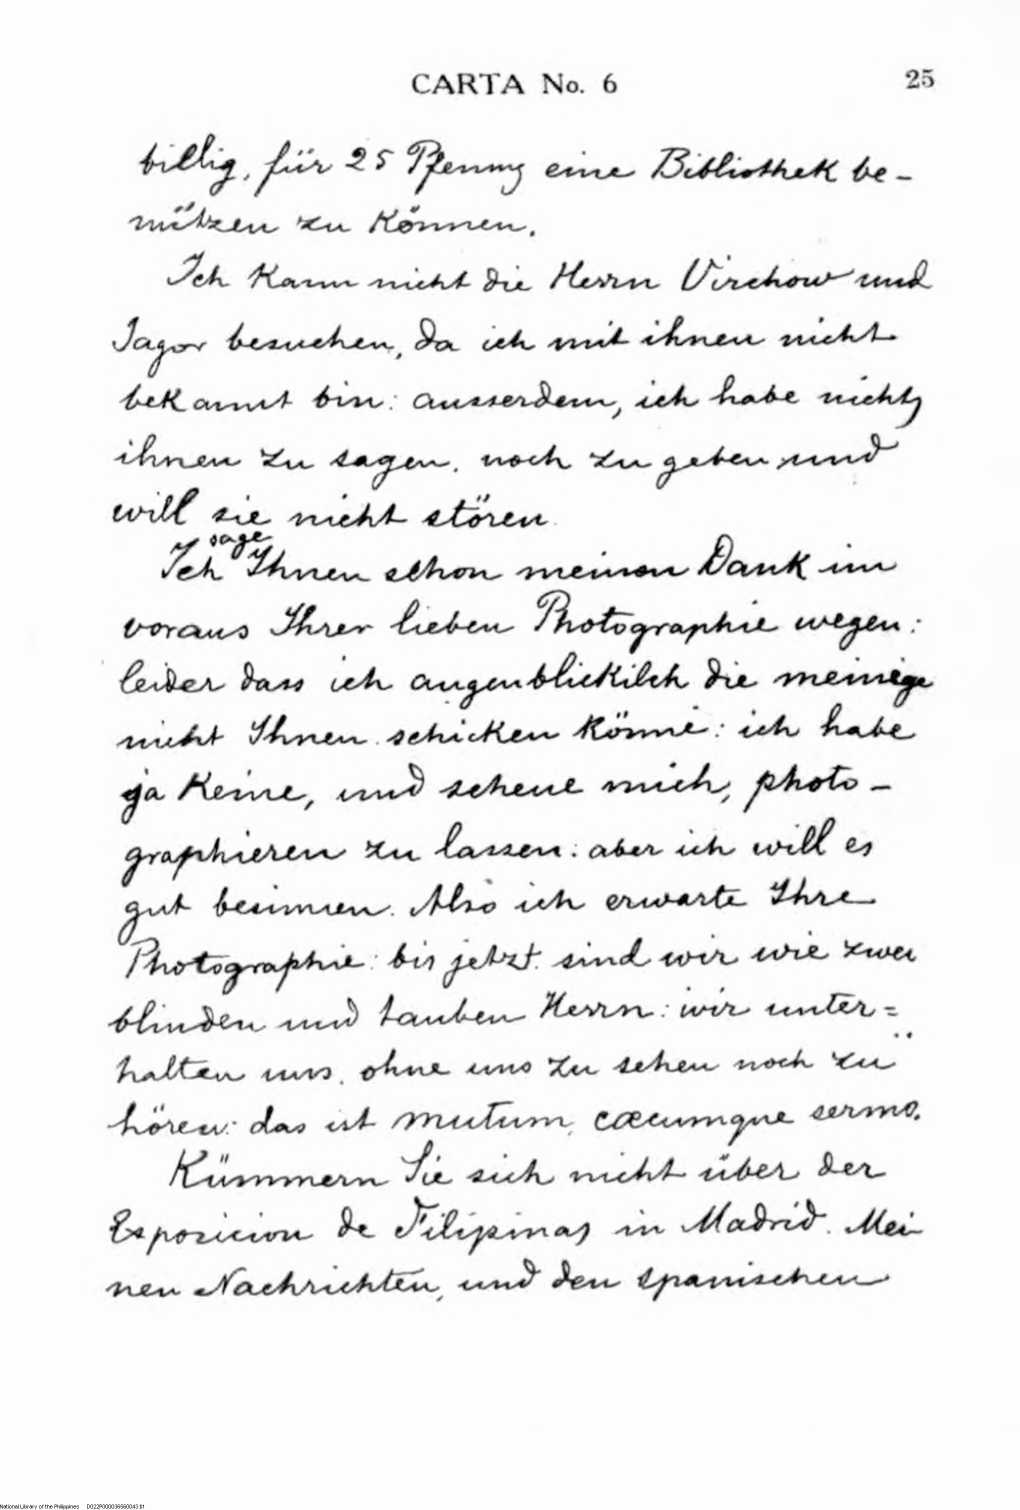 CARTA No. 6
25
billig, für 25 Pfennig eine Bibliothek be-
nützen zu können.
Ich kann nicht die Herrn Virchow und
Jagor besuchen, da ich mit ihnen nicht
bekannt bin: ausserdem, ich habe nichts
ihnen zu sagen, noch zu geben, und
will sie nicht stören.
sage
Ich Ihnen schon meinen Dank im
voraus Ihrer lieben Photographie wegen:
leider dass ich augenblickilch die meinige
nicht Ihnen schicken könne: ich habe
ja keine, und scheue mich, photo-
graphieren zu lassen: aber ich will es
gut besinnen. Also ich erwarte Ihre
Photographie: bis jetzt sind wir wie zwei
blinden und tauben Herrn: wir unter=
halten uns, ohne uns zu sehen noch zu
hören: das ist mutum, cœcumque sermo.
Kümmern Sie sich nicht über der
Esposicion de Filipinas in Madrid. Mei
nen Nachrichten, und den spanischen
National Library of the Philippines